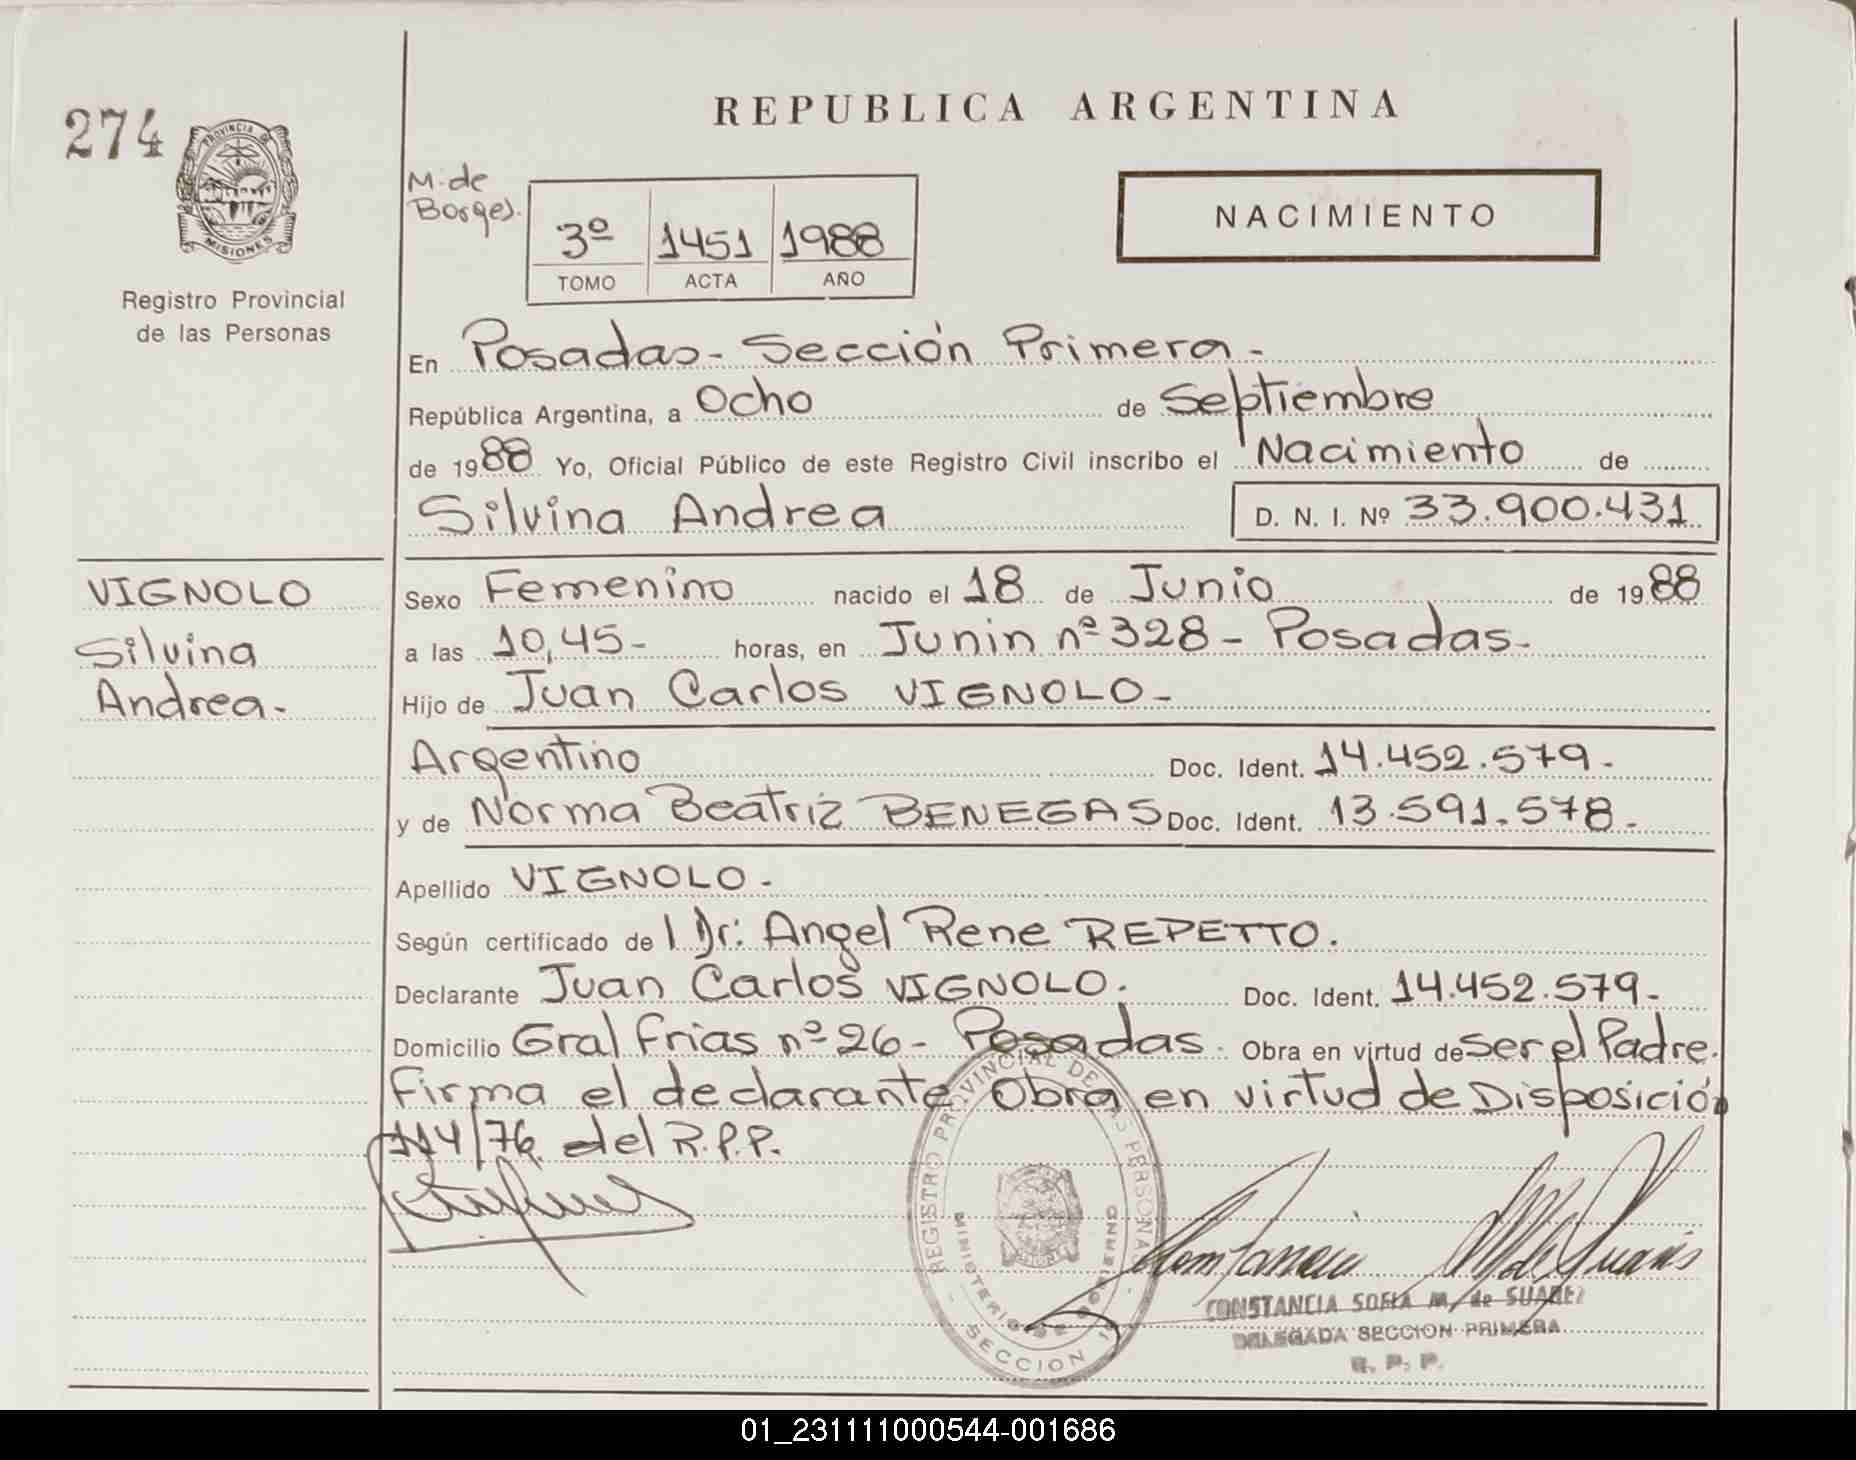 REPUBLICA ARGENTINA
274
PROVINCIA DE
MISIONES
Registro Provincial
de las Personas
M. de
Borges.
3º 1451 1988
TOMO ACTA AÑO
NACIMIENTO
En Posadas - Sección Primera -
República Argentina, a Ocho de Septiembre
de 1988 Yo, Oficial Público de este Registro Civil inscribo el Nacimiento de
Silvina Andrea D. N. I. Nº 33.900.431
VIGNOLO
Silvina
Andrea -
Sexo Femenino nacido el 18 de Junio de 1988
a las 10,45 - horas, en Junin nº 328 - Posadas -
Hijo de Juan Carlos VIGNOLO -
Argentino Doc. Ident. 14.452.579 -
y de Norma Beatriz BENEGAS Doc. Ident. 13.591.578 -
Apellido VIGNOLO -
Según certificado de l Dr: Angel Rene REPETTO.
Declarante Juan Carlos VIGNOLO. Doc. Ident. 14.452.579 -
Domicilio Gral Frias nº 26 - Posadas. Obra en virtud de ser el Padre.
Firma el declarante Obra en virtud de Disposición
114/76 del R.P.P.
REGISTRO PROVINCIAL DE LAS PERSONAS
MINISTERIO DE GOBIERNO
SECCION 1ª
CONSTANCIA SOFIA M. de SUAREZ
DELEGADA SECCION PRIMERA
R. P. P.
01_231111000544-001686